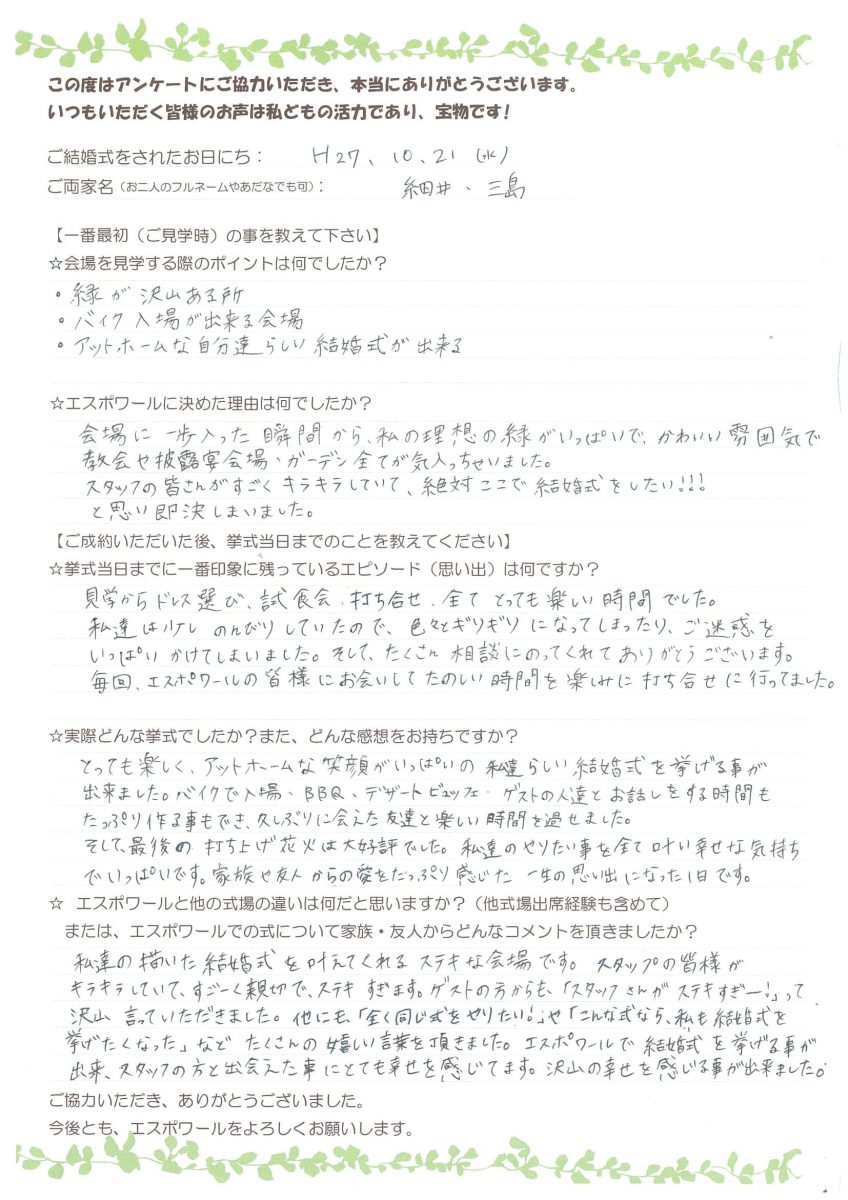 この度はアンケートにご協力いただき、本当にありがとうございます。
いつもいただく皆様のお声は私どもの活力であり、宝物です!
ご結婚式をされたお日にち： H27、10.21 (水)
ご両家名（お二人のフルネームやあだなでも可）： 細井、三島
【一番最初（ご見学時）の事を教えて下さい】
☆会場を見学する際のポイントは何でしたか？
・緑が沢山ある所
・バイク入場が出来る会場
・アットホームな自分達らしい結婚式が出来る
☆エスポワールに決めた理由は何でしたか？
会場に一歩入った瞬間から、私の理想の緑がいっぱいで、かわいい雰囲気で
教会や披露宴会場・ガーデン全てが気入っちゃいました。
スタッフの皆さんがすごくキラキラしていて、絶対ここで結婚式をしたい!!!
と思い即決しまいました。
【ご成約いただいた後、挙式当日までのことを教えてください】
☆挙式当日までに一番印象に残っているエピソード（思い出）は何ですか？
見学からドレス選び、試食会、打ち合せ、全てとっても楽しい時間でした。
私達は少しのんびりしていたので、色々とギリギリになってしまったり、ご迷惑を
いっぱいかけてしまいました。そして、たくさん相談にのってくれてありがとうございます。
毎回、エスポワールの皆様にお会いしてたのしい時間を楽しみに打ち合せに行ってました。
☆実際どんな挙式でしたか？また、どんな感想をお持ちですか？
とっても楽しく、アットホームな笑顔がいっぱいの私達らしい結婚式を挙げる事が
出来ました。バイクで入場・BBQ・デザートビュッフェ・ゲストの人達とお話しをする時間も
たっぷり作る事もでき、久しぶりに会えた友達と楽しい時間を過せました。
そして、最後の打ち上げ花火は大好評でした。私達のやりたい事を全て叶い幸せな気持ち
でいっぱいです。家族や友人からの愛をたっぷり感じた一生の思い出になった1日です。
☆ エスポワールと他の式場の違いは何だと思いますか？（他式場出席経験も含めて）
または、エスポワールでの式について家族・友人からどんなコメントを頂きましたか？
私達の描いた結婚式を叶えてくれるステキな会場です。スタッフの皆様が
キラキラしていて、すごーく親切で、ステキすぎます。ゲストの方からも、「スタッフさんがステキすぎー!」って
沢山言っていただきました。他にも「全く同じ式をやりたい!」や「こんな式なら、私も結婚式を
挙げたくなった」などたくさんの嬉しい言葉を頂きました。エスポワールで結婚式を挙げる事が
出来、スタッフの方と出会えた事にとても幸せを感じてます。沢山の幸せを感じる事が出来ました。
ご協力いただき、ありがとうございました。
今後とも、エスポワールをよろしくお願いします。